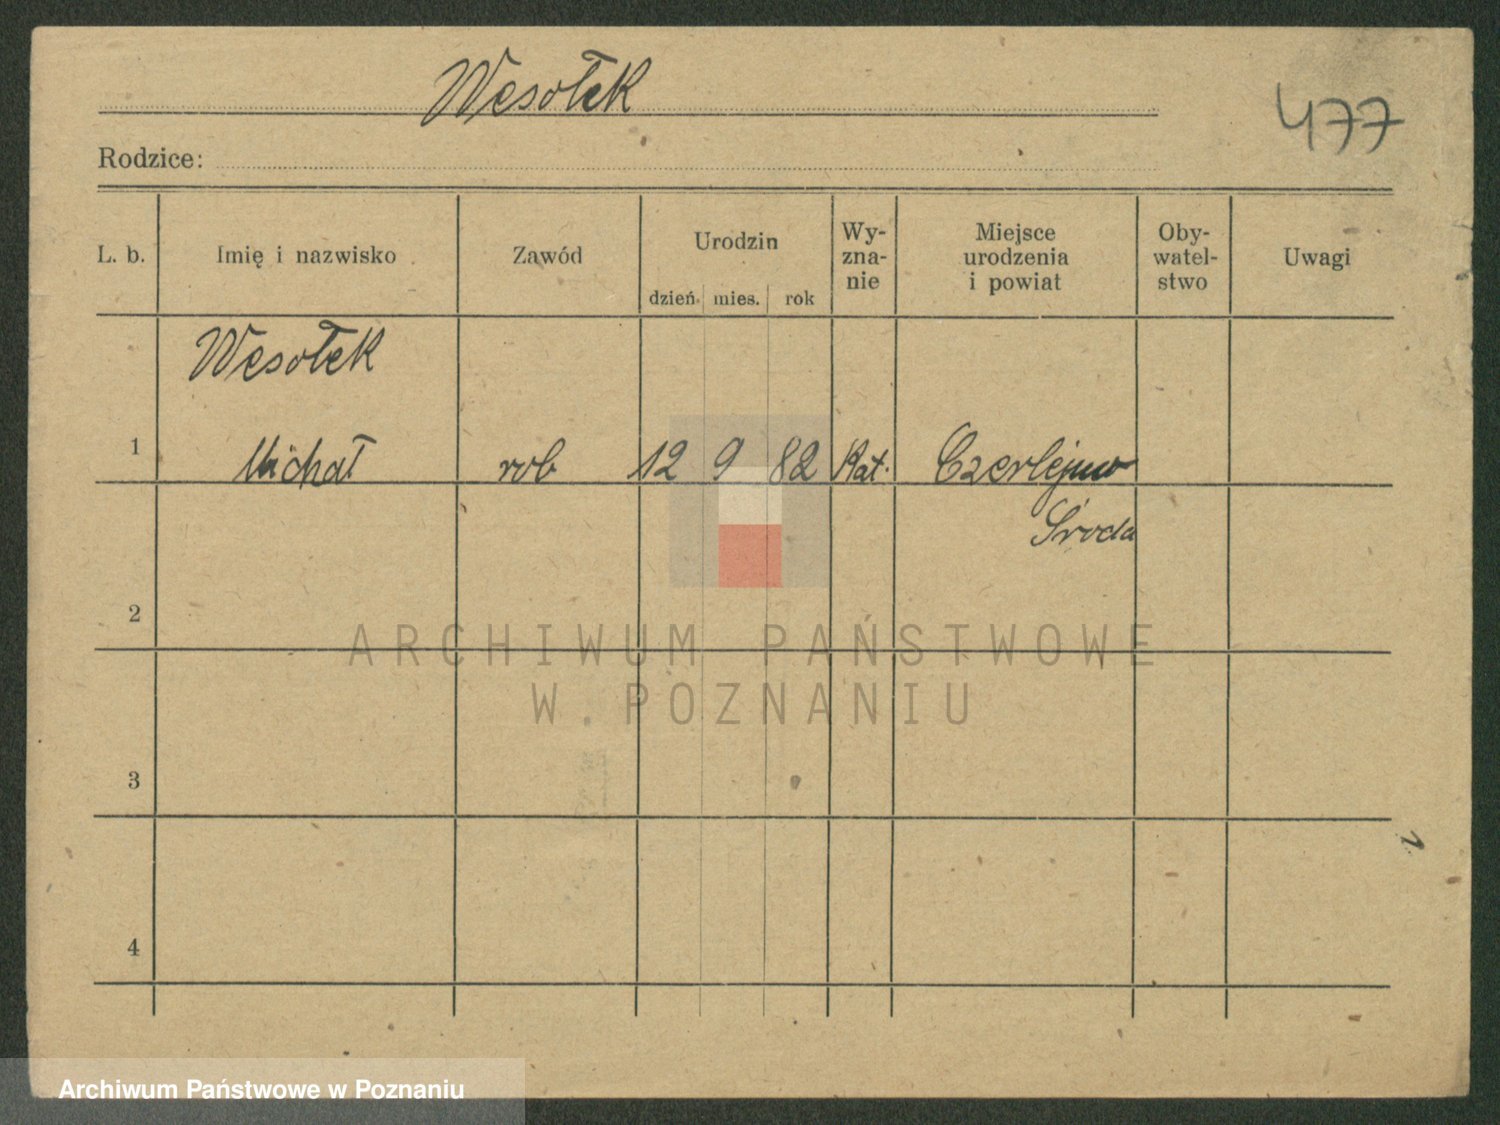 Wesołek
477
Rodzice:
L. b. Imię i nazwisko Zawód Urodzin dzień mies. rok Wy-zna-nie Miejsce urodzenia i powiat Oby-watel-stwo Uwagi
Wesołek
1 Michał rob 12 9 82 Kat. Czerlejno
Środa
2
ARCHIWUM PAŃSTWOWE
W POZNANIU
3
1
4
Archiwum Państwowe w Poznaniu